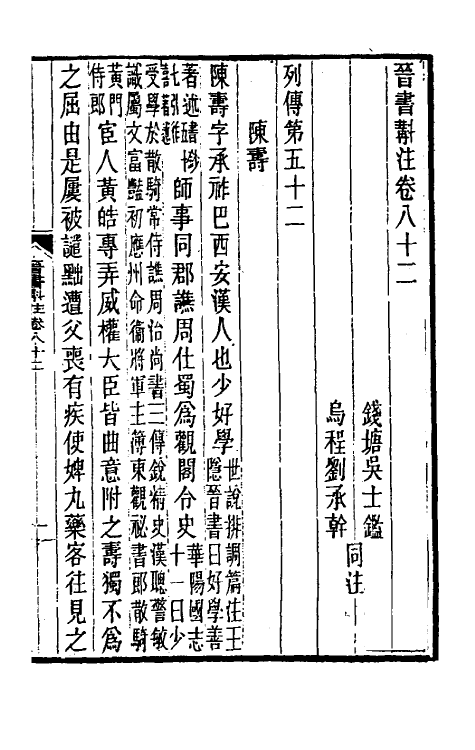 晉書斠注卷八十二
錢塘吳士鑑
烏程劉承幹
同注
列傳第五十二
陳壽
陳壽字承祚巴西安漢人也少好學世說排調篇注王隱晉書曰好學善
著述師事同郡譙周仕蜀爲觀閣令史華陽國志十一曰少
受學於散騎常侍譙周治尚書三傳銳精史漢聰警敏
識屬文富豔初應州命衞將軍主簿東觀祕書郎散騎
黃門侍郎宦人黃皓專弄威權大臣皆曲意附之壽獨不爲
之屈由是屢被譴黜遭父喪有疾使婢丸藥客往見之
晉書斠注卷八十二
一